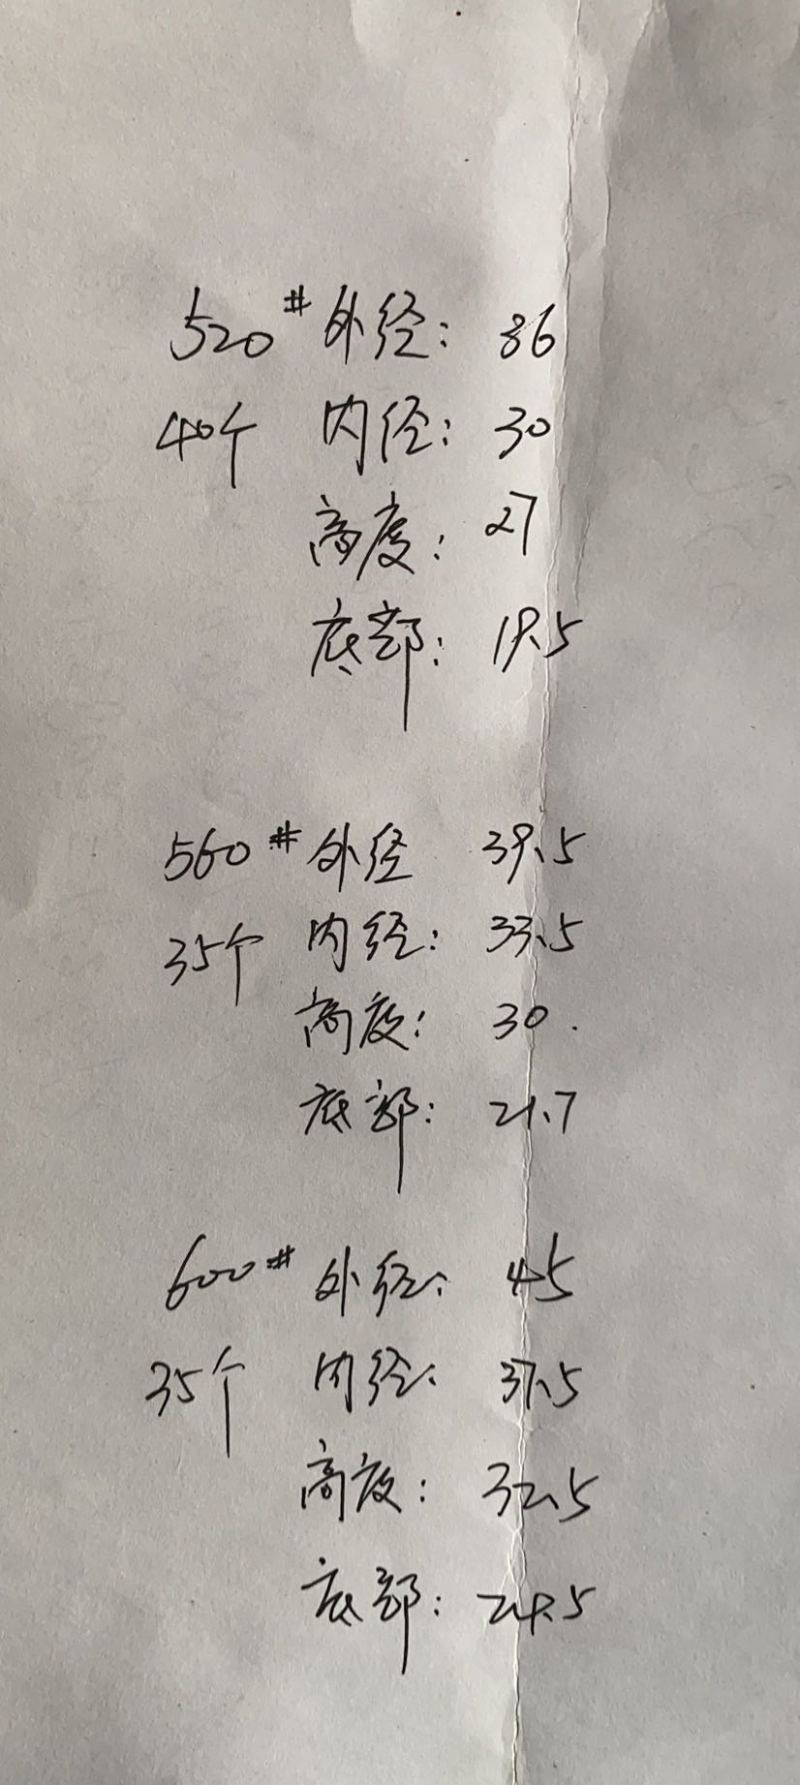 520# 外径: 36
40个 内径: 30
高度: 27
底部: 19.5
560# 外径 39.5
35个 内径: 33.5
高度: 30.
底部: 21.7
600# 外径: 45
35个 内径: 37.5
高度: 32.5
底部: 24.5